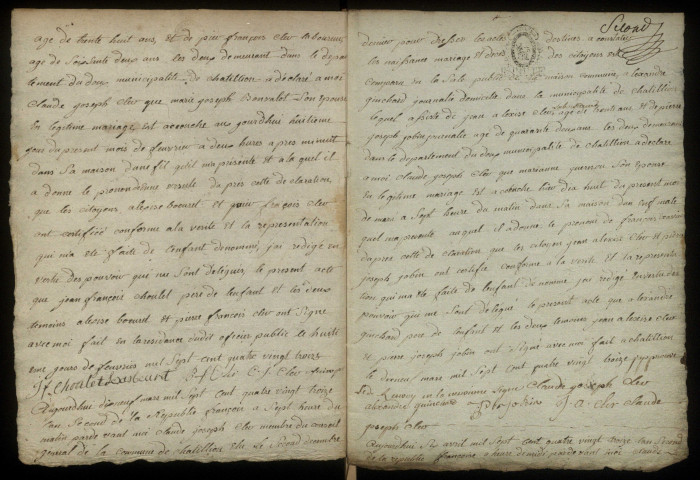 age de trente huit ans, et de pier françois cler laboureur
age de soisante deux ans les deux demeurant dans le depar
tement du doux municipalite de chatillion a déclaré a moi
Claude joseph Cler que marie joseph Bonvalot son epouse
en legitime mariage, est accouche aujourdhuit huitieme
jour du present mois de fevrier a deux hures apres minuit
dans sa maison dun fil qu'il ma présenté et a la quel il
a donne le prenom d'aprés cette declaration
que les citoyens alexsie boeuret et pier françois Cler
ont certiffié conforme a la verité et la representation
qui ma eté faite de lenfant denommé, j'ai redigé en
vertu des pouvoir que me sont delegués, le present acte
que jean françois choulet pere de lenfant et les deux
temoins alexsse boeuret et pierre françois Cler ont signé
avec moi fait en la residance dudit officier public le huite
eme jours de fevrier mil sept cent quatre vingt trois
J f choulet P f Cler C J Cler
Aujourdhuie dix neuf mars mil sept cent quatre vingt treize
l'an second de la république françois a sept heure du
matin pardevant moi claude joseph Cler membre du conseil
general de la commune de chatillion elu le second decembre
Second
dernier pour dresser les actes destines a constater
les naissance mariage et deces des citoyens est
comparu en la sale public maison commune alexandre
guichard journalie domicilie dans la municipalite de chatillion
lequel assisté de jean alexsie Cler age de trente ans et de pierre
joseph jobin journalie age de quarante deux ans les deux demeurant
dans le departement du doux municipalite de chatillion a déclaré
a moi claude joseph Cler que marianne son epouse
en legitime mariage est acouché hier dix huit du present moi
de mars a sept heure du matin dans sa maison dun enf male
quel ma presenté auquel il a donné le prenoi de françois
daprès cette declaration que les citoyen jean alexsie Cler et pierre
joseph jobin ont certifié conforme a la verité et la représenta
tion qui ma eté faite de lenfant denommé jai redigé en vertu des
pouvoir qui me sont delegué le present acte que alexandre
guichard pere de lenfant et les deux temoins jean alexsie Cler
et pierre joseph jobin ont signé avec moi fait a chatillion
le dixneu mars mil sept cent quatre vingt treize
Claude joseph Cler
alexandre P J jobin J A Cler Claude
joseph Cler
Aujourdhui six avril mil sept cent quatre vingt treize lan second
de la république françoise a heure de midi pardevant moi Claude